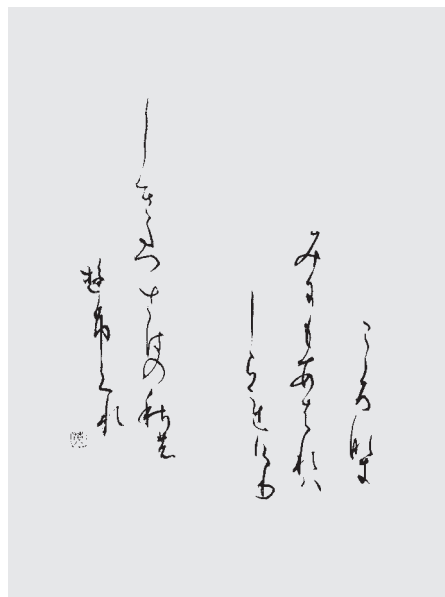 こころなき
みにもあはれハ
しられけり
しきたつさはの秋の
ゆふくれ